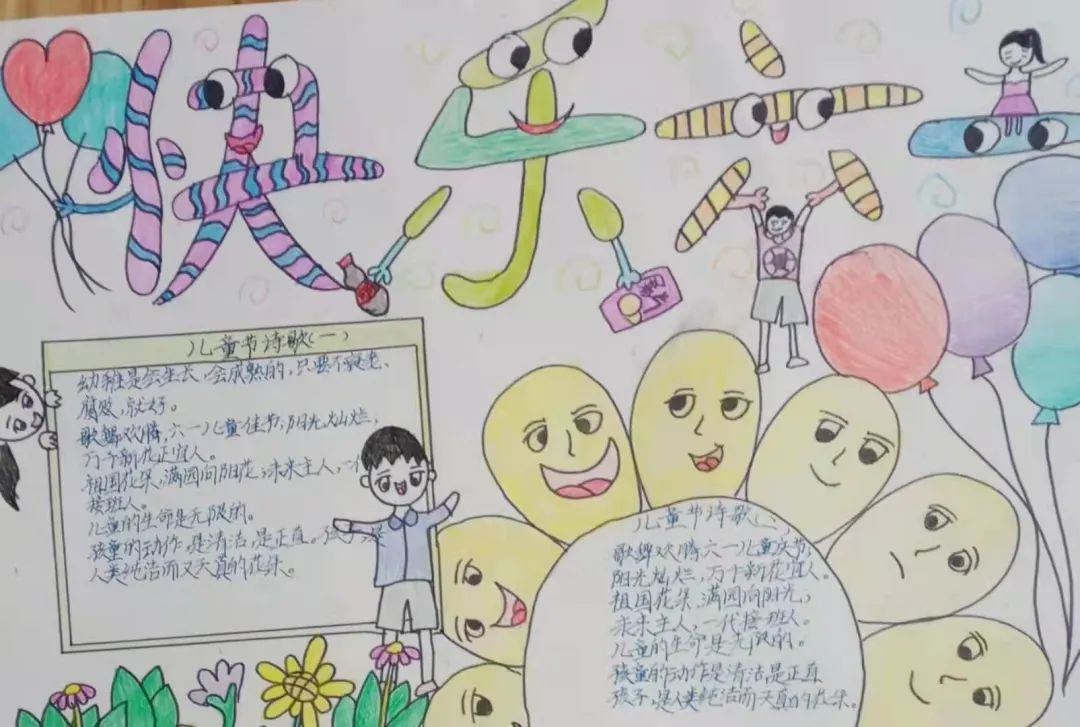 快乐六一
儿童节诗歌(一)
幼稚是会生长、会成熟的,只要不衰老、
腐败,就好。
歌舞欢腾,六一儿童佳节,阳光灿烂,
万千新花正宜人。
祖国花朵,满园向阳花;未来主人,一代
接班人。
儿童的生命是无限的。
孩童的动作,是清洁,是正直。孩子是
人类纯洁而又天真的花朵。
儿童节诗歌(
歌舞欢腾六一儿童庆节,
阳光灿烂,万千新花宜人。
祖国花朵,满园向阳光;
未来主人,一代接班人。
儿童的生命是无限的。
孩童的动作是清洁是正直
孩子,是人类纯洁而天真的花朵。